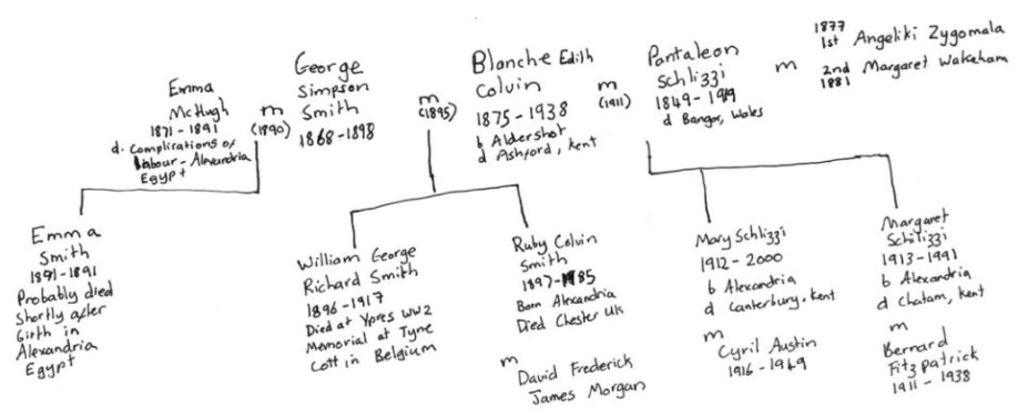 Emma
McHugh
1871 - 1891
d. Complications of
labour - Alexandria
Egypt
m
(1890)
George
Simpson
Smith
1868-1898
m
(1895)
Blanche Edith
Colvin
1875 - 1938
b Aldershot
d Ashford, Kent
m
(1911)
Pantaleon
Schlizzi
1849 - 1919
d Bangor, Wales
m
1877
1st Angeliki Zygomala
2nd Margaret Wakeham
1881
Emma
Smith
1891-1891
Probably died
shortly after
birth in
Alexandria
Egypt
William George
Richard Smith
1896 - 1917
Died at Ypres WW2
Memorial at Tyne
Cott in Belgium
Ruby Colvin
Smith
1897-1985
Born Alexandria
Died Chester UK
m
David Frederick
James Morgan
Mary Schlizzi
1912 - 2000
b Alexandria
d Canterbury, Kent
m
Cyril Austin
1916 - 1949
Margaret
Schilizzi
1913 - 1991
b Alexandria
d Chatam, Kent
m
Bernard
Fitzpatrick
1911 - 1938